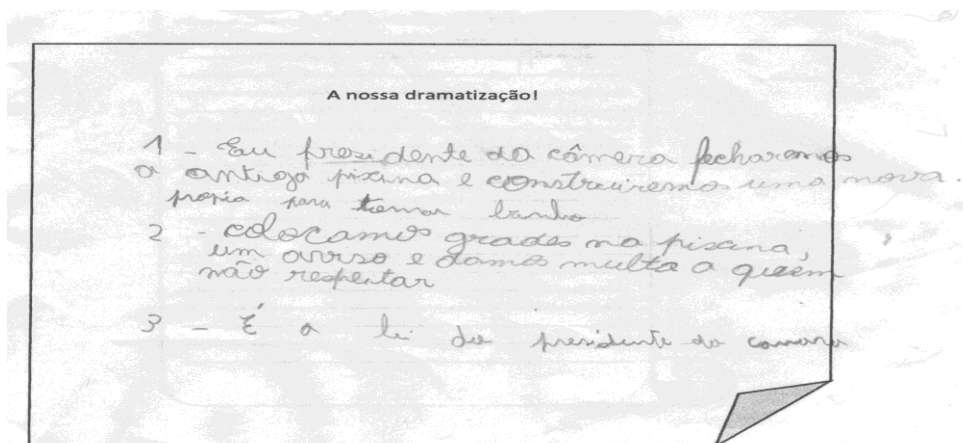 A nossa dramatização!
1 - Eu presidente da câmera fecharemos
a antiga piscina e construiremos uma nova.
propia para tomar banho
2 - colocamos grades na piscina,
um aviso e damos multa a quem
não respeitar
3 - É a lei do presidente da camara